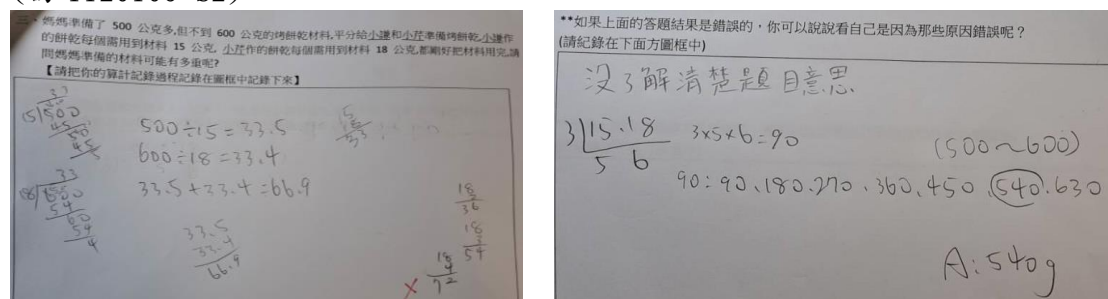 三、媽媽準備了 500 公克多,但不到 600 公克的烤餅乾材料,平分給小謙和小芹準備烤餅乾,小謙作
的餅乾每個需用到材料 15 公克, 小芹作的餅乾每個需用到材料 18 公克,都剛好把材料用完,請
問媽媽準備的材料可能有多重呢?
【請把你的算計記錄過程記錄在圖框中記錄下來】
500÷15=33.5
600÷18=33.4
33.5+33.4=66.9
33
15)500
45
50
45
5
33
18)600
54
60
54
4
33.5
33.4
66.9
18
36
18
3
54
18
4
72
**如果上面的答題結果是錯誤的,你可以說說看自己是因為那些原因錯誤呢?
(請紀錄在下面方圖框中)
沒了解清楚題目意思
3)15.18 3×5×6=90
5 6
(500~600)
90:90.180.270.360.450.540.630
A:540g